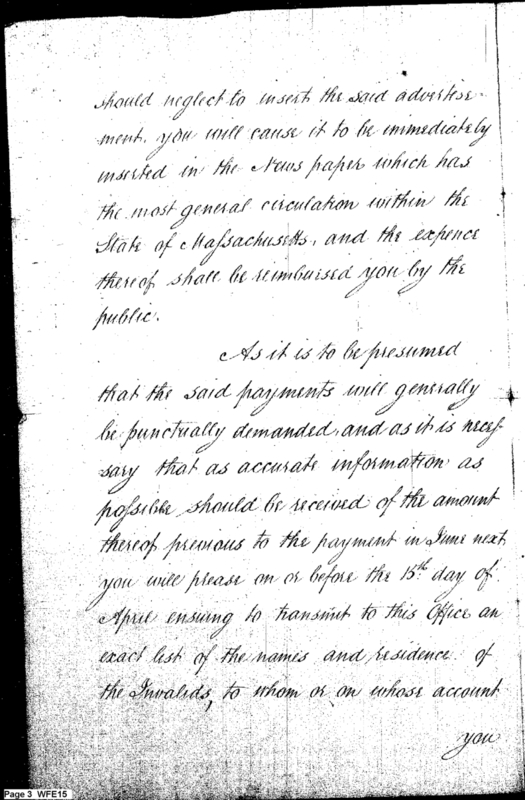 should neglect to insert the said advertise-
ment, you will cause it to be immediately
inserted in the News paper which has
the most general circulation within the
State of Massachusetts, and the expence
thereof shall be reimbursed you by the
public.
As it is to be presumed
that the said payments will generally
be punctually demanded, and as it is neces-
sary that as accurate information as
possible should be received of the amount
thereof previous to the payment in June next,
you will please on or before the 15th day of
April ensuing to transmit to this Office an
exact list of the names and residence of
the Invalids, to whom or on whose account
you
Page 3 WFE15